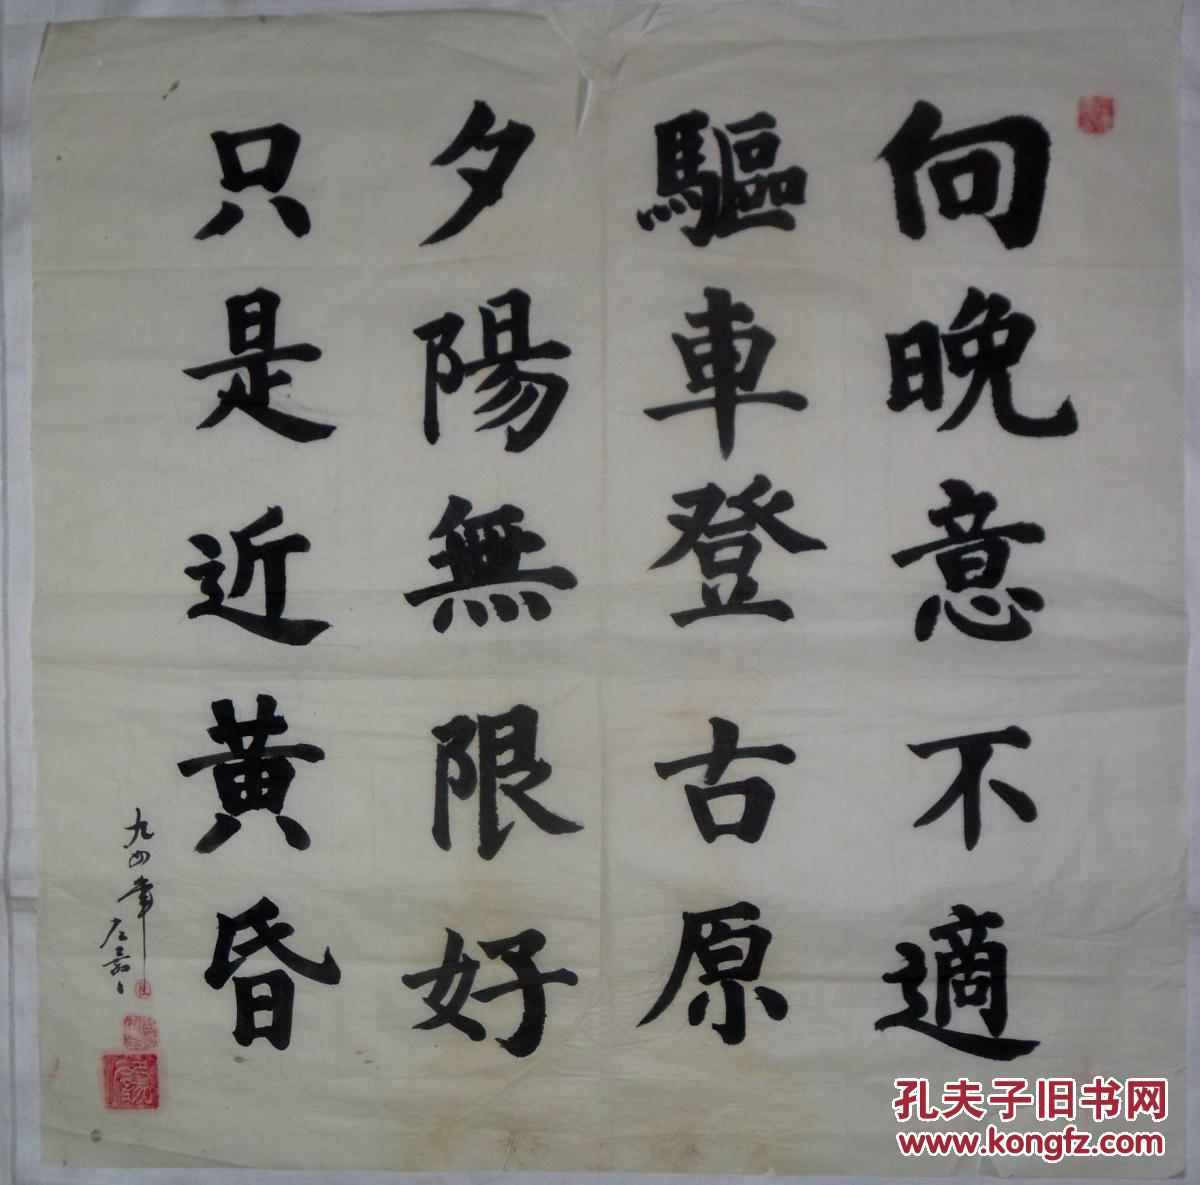 向晚意不適
驅車登古原
夕陽無限好
只是近黃昏
九四年
孔夫子旧书网
www.kongfz.com